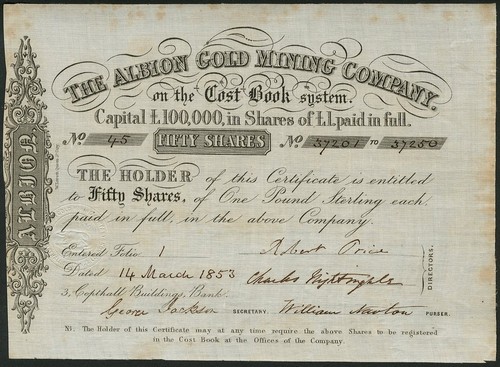 THE ALBION GOLD MINING COMPANY.
on the Cost Book system.
Capital £100,000, in Shares of £1, paid in full.
No 45 FIFTY SHARES No 37201 TO 37250
THE HOLDER of this Certificate is entitled
to Fifty Shares, of One Pound Sterling each,
paid in full, in the above Company.
Entered Folio 1 Robert Price
Dated 14 March 1853 Charles Nightingale
DIRECTORS.
3, Copthall Buildings, Bank.
George Jackson SECRETARY. William Newton PURSER.
N.B. The Holder of this Certificate may at any time require the above Shares to be registered
in the Cost Book at the Offices of the Company.
ALBION.